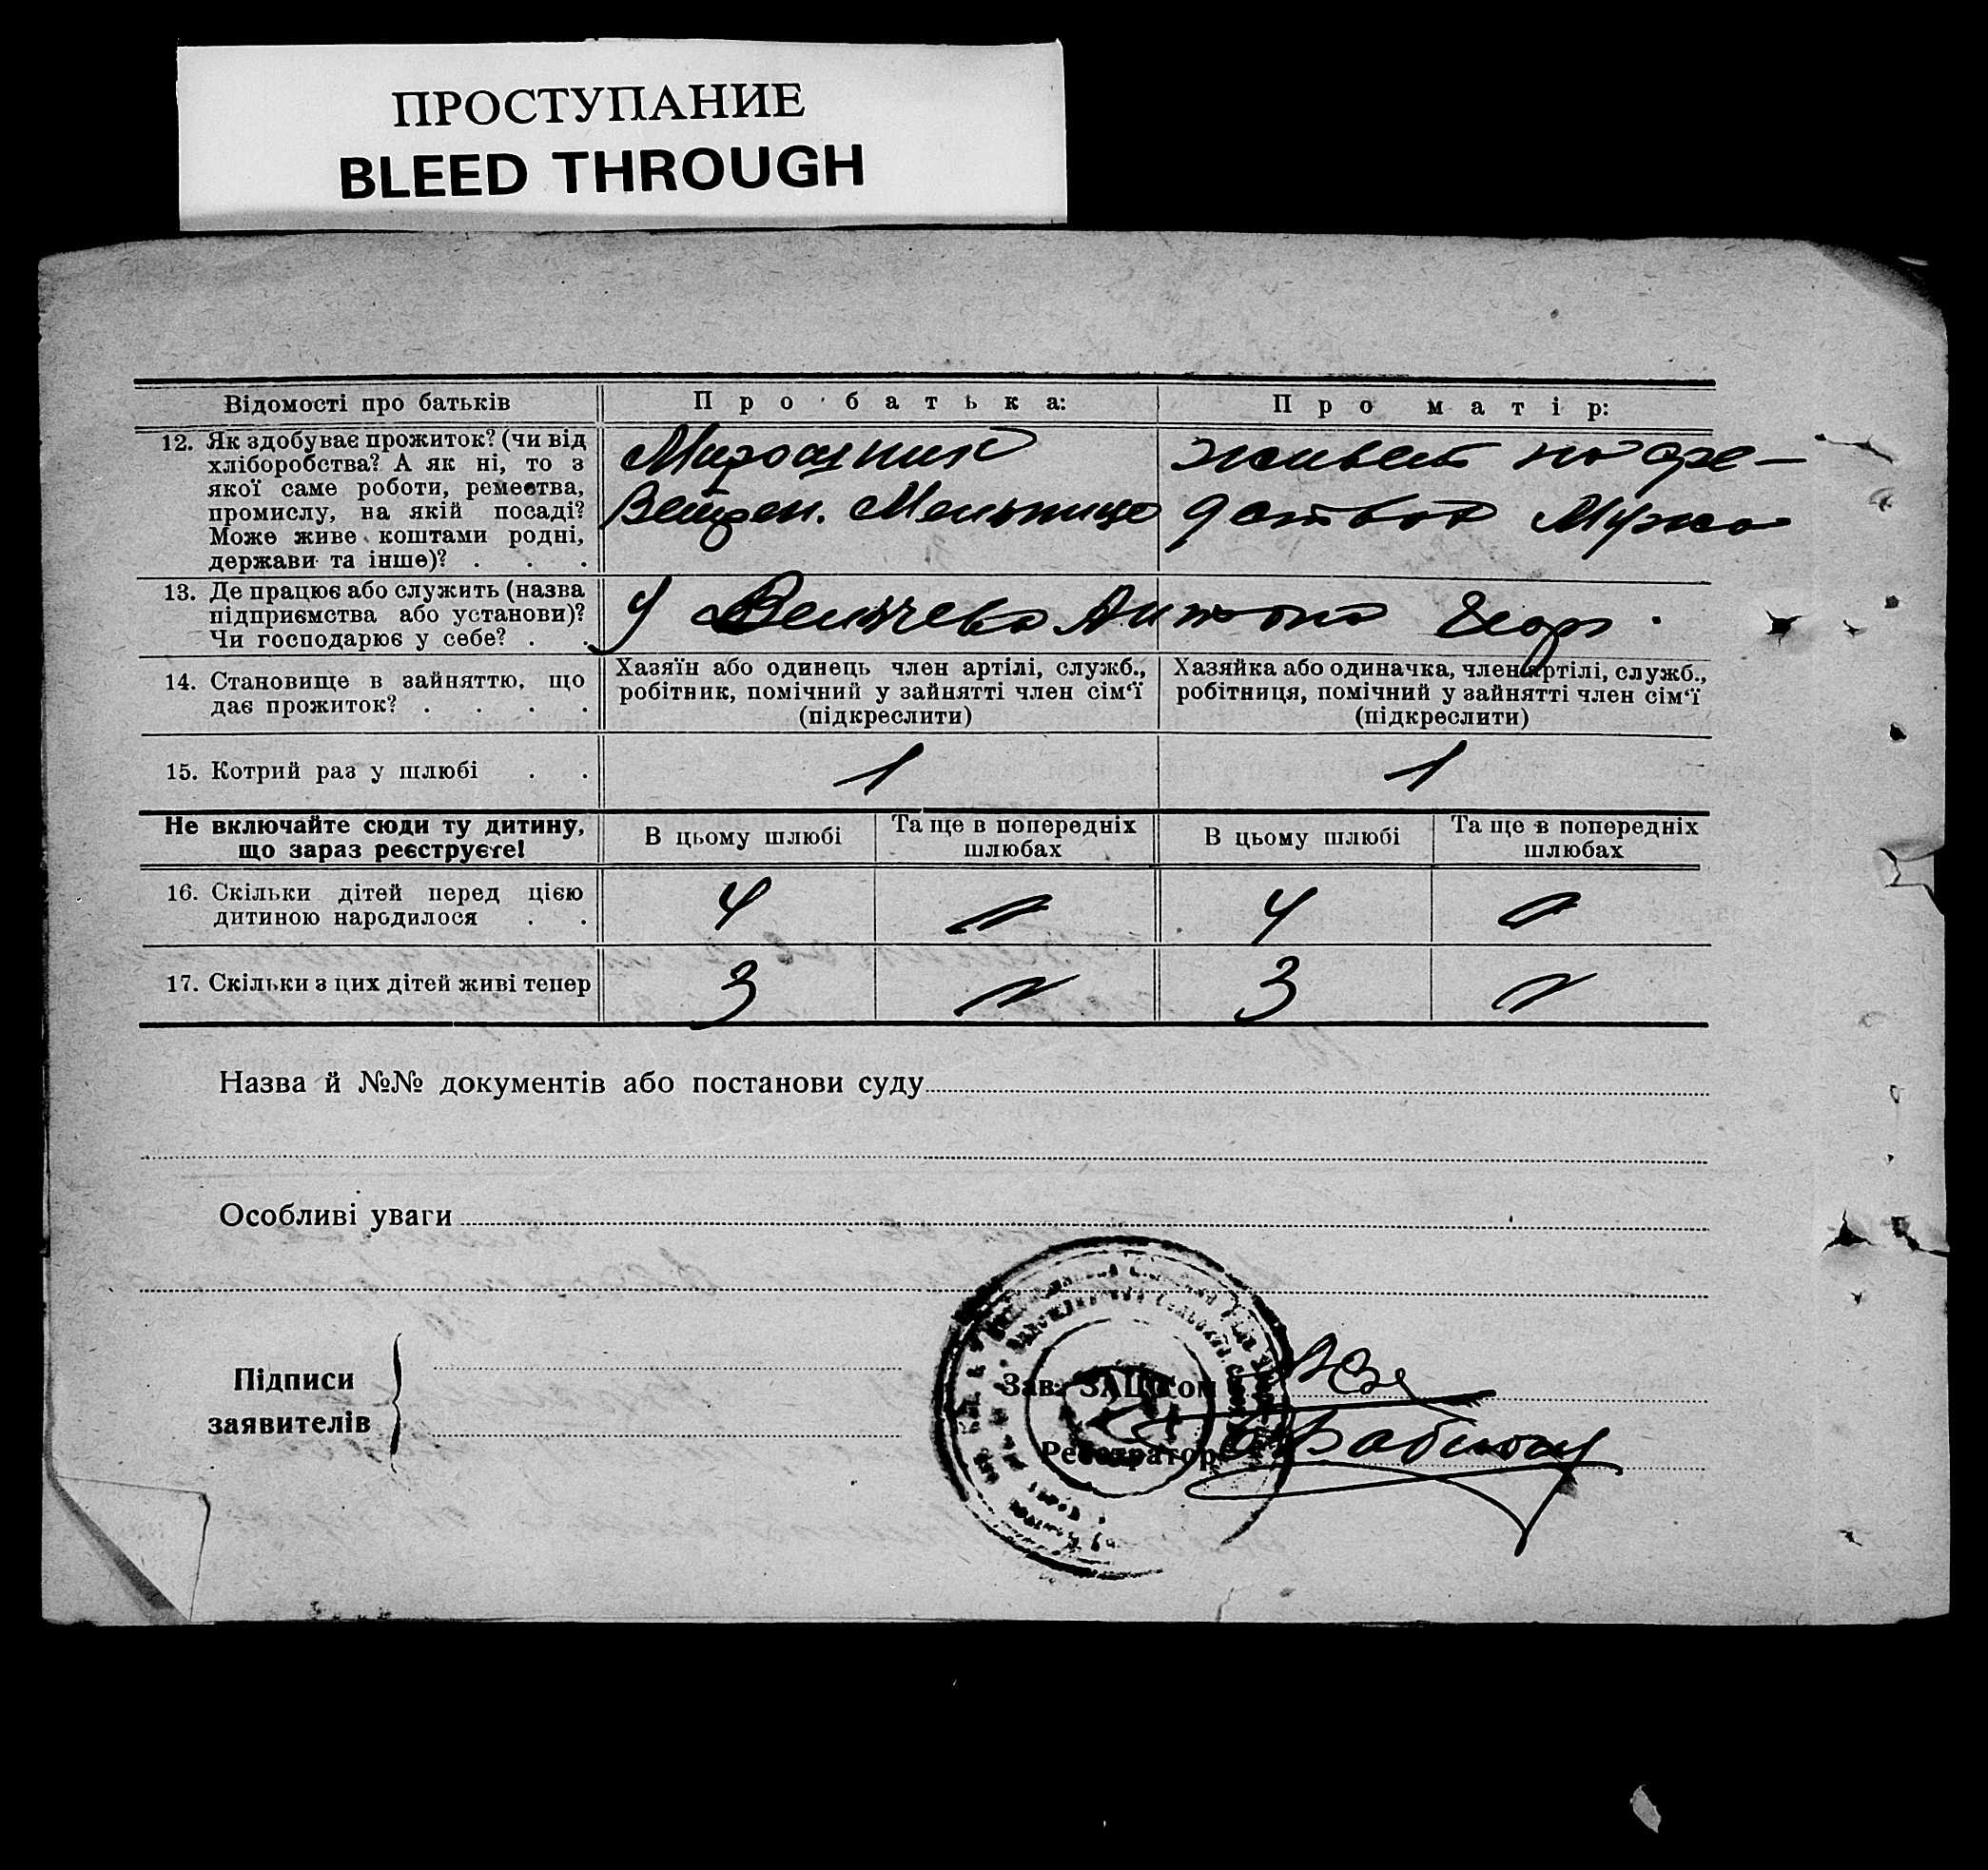 ПРОСТУПАНИЕ
BLEED THROUGH
Відомості про батьків
Про батька:
Про матір:
12. Як здобуває прожиток? (чи від
хліборобства? А як ні, то з
якої саме роботи, ремества,
промислу, на якій посаді?
Може живе коштами родні,
держави та інше)? . . .
Мирошник
Ветрен. Мельнице
живет на сре-
дства Мужа
13. Де працює або служить (назва
підприємства або установи)?
Чи господарює у себе? . .
У Велічева Антона Егор.
14. Становище в зайняттю, що
дає прожиток? . . . .
Хазяїн або одинець член артілі, служб.,
робітник, помічний у зайнятті член сім‘ї
(підкреслити)
Хазяйка або одиначка, член артілі, служб.,
робітниця, помічний у зайнятті член сім‘ї
(підкреслити)
15. Котрий раз у шлюбі . .
1
1
Не включайте сюди ту дитину,
що зараз реєструєте!
В цьому шлюбі
Та ще в попередніх
шлюбах
В цьому шлюбі
Та ще в попередніх
шлюбах
16. Скільки дітей перед цією
дитиною народилося . .
4
4
17. Скільки з цих дітей живі тепер
3
3
Назва й №№ документів або постанови суду
Особливі уваги
Підписи
заявителів
Зав. ЗАЦСом
Реєстратор